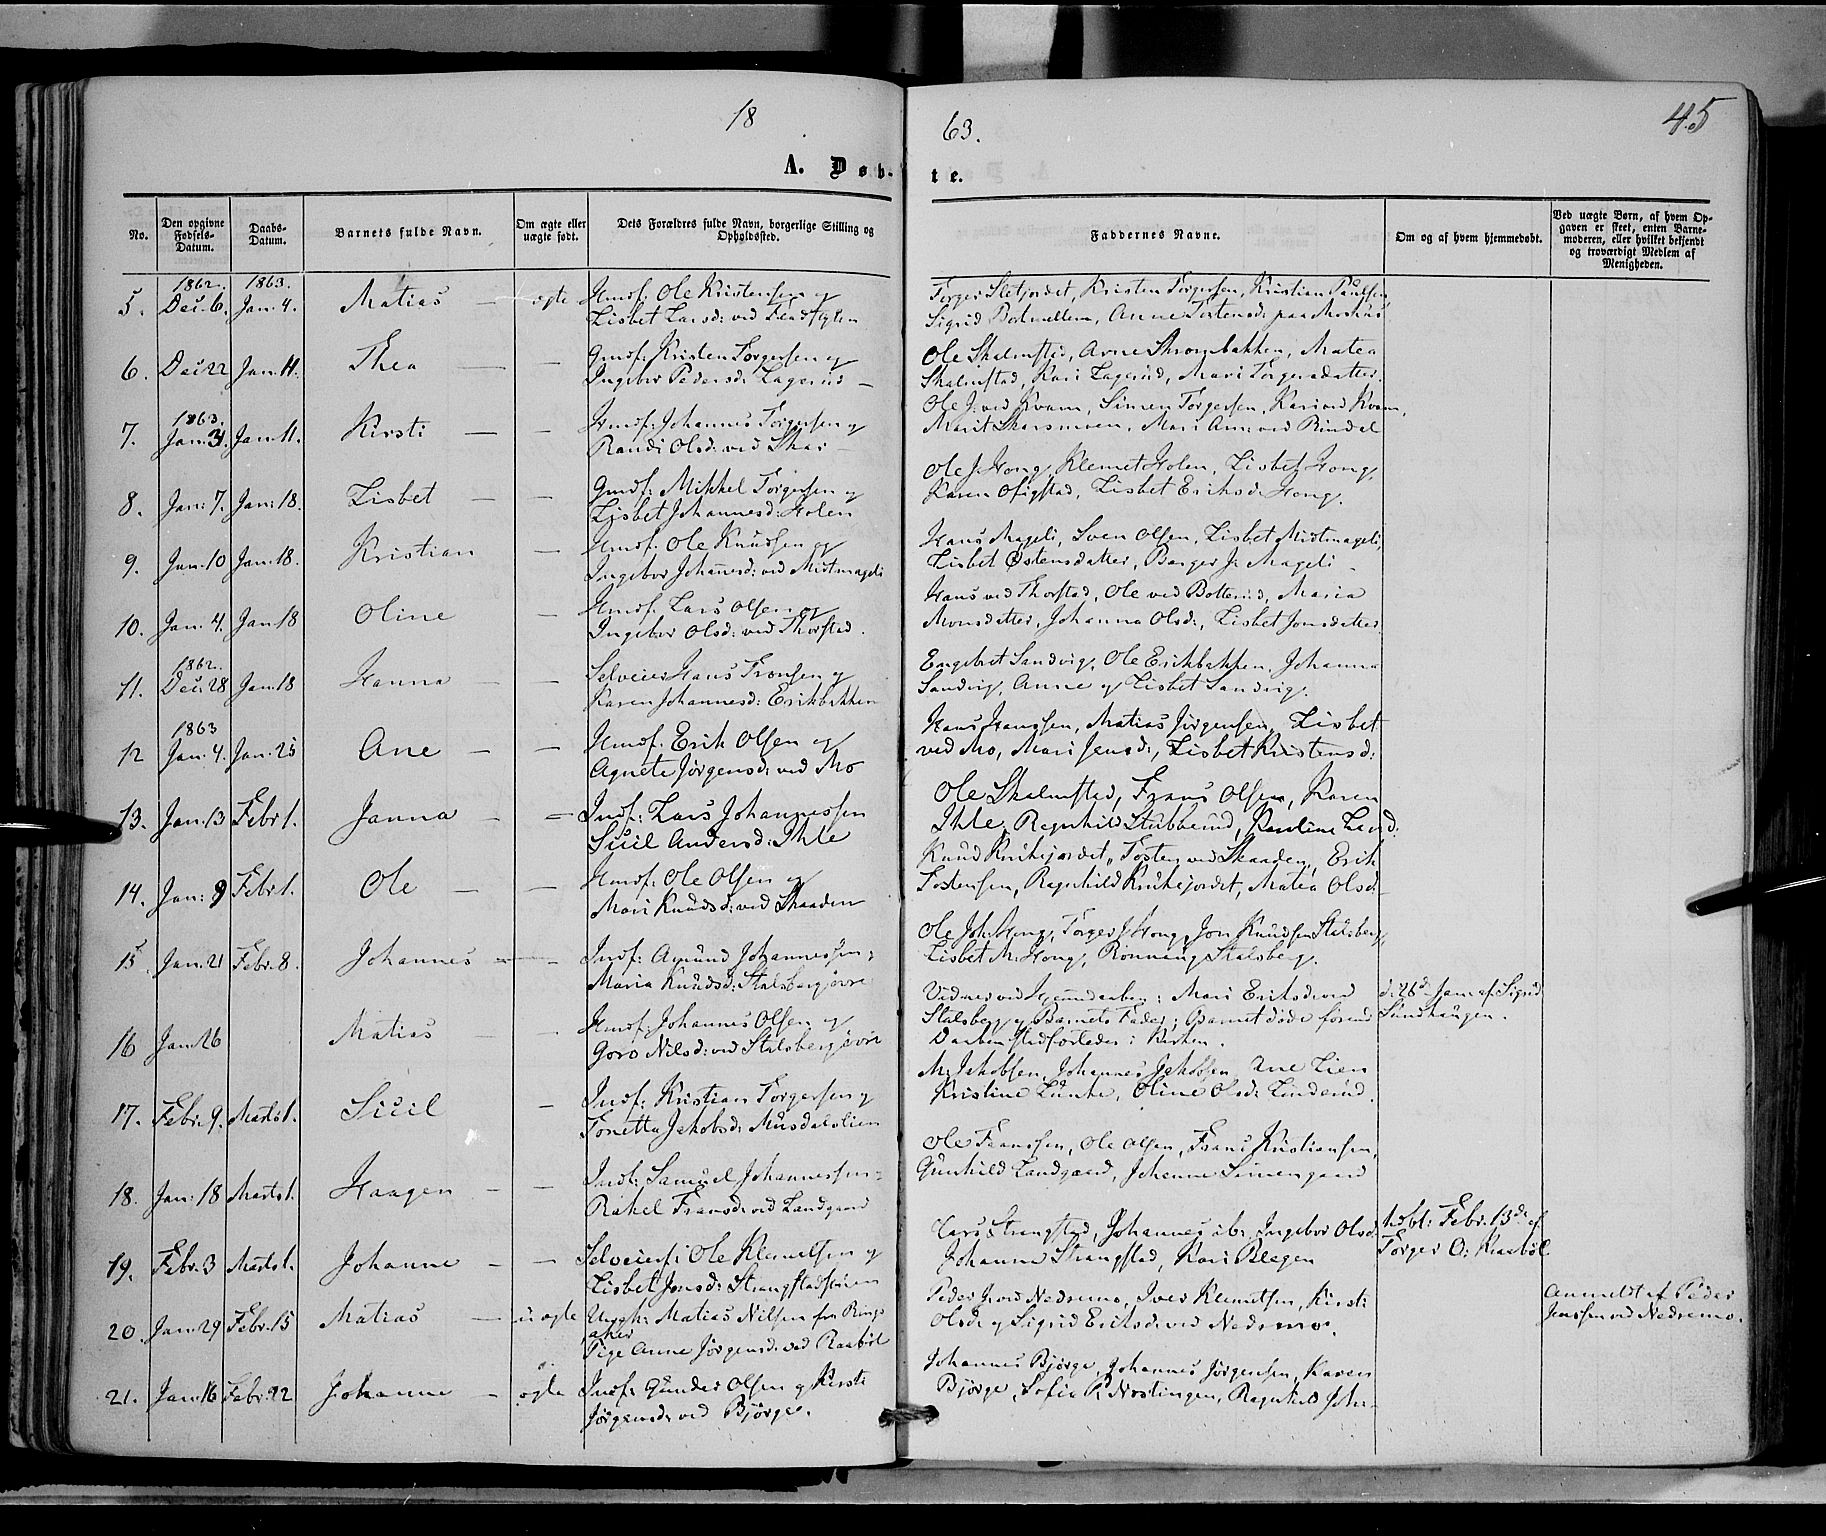 18
63.
45
A. Døb-
te.
No.
Den opgivne Fødsels-Datum.
Daabs-Datum.
Barnets fulde Navn.
Om ægte eller uægte født.
Dets Forældres fulde Navn, borgerlige Stilling og Opholdssted.
Faddernes Navne.
Om og af hvem hjemmedøbt.
Ved uægte Børn, af hvem Opgaven er skeet, enten Barnemoderen, eller hvilket bekjendt og troværdigt Medlem af Menigheden.
1862. 1863.
5. Dec. 6. Jan. 4. Matias — ægte Husmf: Ole Kristensen og
Lisbet Larsd: ved
Sigrid Anne Tostensd:
6. Dec 22 Jan. 11. Thea — — Gmdf: Kristen Torgersen og
Ingebor Pedersd: Lagerud —
Ole Skalmstad, Arne Matea
Skalmstad, Kari Lagerud, Mari Torgersdatter.
1863.
7. Jan. 3. Jan. 11. Kirsti — — Husmf: Johannes Torgersen og
Randi Olsd: ved Skar —
Ole J: ved Kvam, Simen Torgersen, Kari ved Kvam,
Marit Skarsmoen, Mari
8. Jan: 7. Jan: 18. Lisbet — — Gmdf: Mikkel Torgersen og
Lisbet Johannesd: Holen
Ole J: Hong, Klemet Holen, Lisbet Hong,
Karen Lisbet Eriksd: Hong.
9. Jan. 10 Jan. 18. Kristian — Husmf: Ole Knudsen og
Ingebor Johannesd: ved Mistmageli
Hans Mageli, Sven Olsen, Lisbet Mistmageli,
Lisbet Østensdatter, Berger J: Mageli —
10. Jan. 4. Jan 18 Oline — Husmf: Lars Olsen og
Ingebor Olsd: ved Thorstad.
Hans ved Thorstad, Ole ved Maria
Monsdatter, Johanna Olsd:, Lisbet Jonsdatter
1862.
11. Dec. 28 Jan. 18 Hanna — — Selveier Hans Fronsen og
Karen Johannesd: Erikbakken
Engebret Sandvig, Ole Erikbakken, Johanna
Sandvig, Anne og Lisbet Sandvig.
1863
12 Jan. 4. Jan. 25 Ane — — Husmf: Erik Olsen og
Agnete Jørgensd: ved Mo
Hans Hanssen, Matias Jørgensen, Lisbet
ved Mo, Mari Jensd:, Lisbet Kristensd:
13. Jan. 13 Febr 1. Janna — — Indf: Lars Johannessen
Sicil Andersd: Ihle
Ole Skalmstad, Frans Olsen, Karen
Ihle, Regnhild Stubberud, Karoline
14. Jan: 9 Febr 1. Ole — — Husmf: Ole Olsen og
Mari Knudsd: ved Skaaden
Knud Tosten ved Skaaden, Erik
Tostensen, Regnhild Matia Olsd: —
15. Jan. 21 Febr. 8. Johannes — — Indf: Amund Johannessen,
Maria Knudsd: Stalsberg øvre
Ole Joh: Hong, Torger J Hong, Jon Knudsen Stalsberg,
Lisbet M: Hong, Rønnaug Stalsberg.
16 Jan. 26 Matias — — Husmf: Johannes Olsen og
Goro Nilsd: ved Stalsberg øvre
Vidner ved Hjemmedaaben: Mari Eriksd: ved
Stalsberg og Barnets Fader; Barnet døde førend
Daaben stadfæstedes i Kirken.
d: 26de Jan: af Sigrid
Sundhaugen.
17. Febr. 9. Marts 1. Sicil — Indf: Kristian Torgersen og
Tonetta Jakobsd: Musdalslien
M: Jakobsen, Johannes Jakobsen, Ane Lien
Kristine Lunke, Oline Olsd: Linderud.
18. Jan: 18 Marts 1. Haagen — — Indf: Samuel Johannessen
Rakel Fransd: ved Landgaard
Ole Franssen, Ole Olsen, Frans Kristiansen,
Gunhild Landgaard, Johanne Simengaard
19. Febr. 3 Marts 1. Johanne — — Selveierf: Ole Klemetsen og
Lisbet Jonsd: Strangstadstuen
Lars Strangstad, Johannes ib:, Ingebor Olsd:
Johanne Strangstad, Kari Blegen
hdbt: Febr. 13de af
Torger O: Kraabøl
20. Jan. 29 Febr. 15 Matias — uægte Ungk: Matias Nilsen fra Ringsaker
Pige Anne Jørgensd: ved Raabøl
Peder J: ved Nedremo, Iver Klemetsen, Kirsti
Olsd: og Sigrid Eriksd: ved Nedremo.
Anmeldt af Peder
Jenssen ved Nedremo.
21. Jan. 16 Febr. 22 Johanne — ægte Indf: Gunder Olsen og Kirsti
Jørgensd: ved Bjørge.
Johannes Bjørge, Johannes Jørgensen, Karen
Bjørge, Sofia P. Nordlingen, Regnhild Joh: —